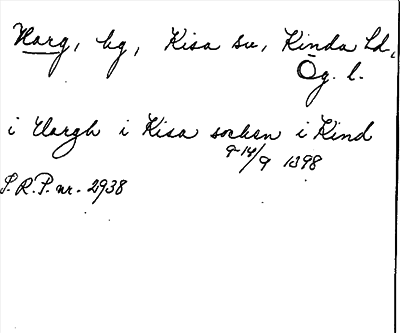 Harg, hg, Kisa sn, Kinda hd,
Ög. l.
i Hargh i Kisa socken i Kind
9-14/9 1398
S.R.P. nr. 2938